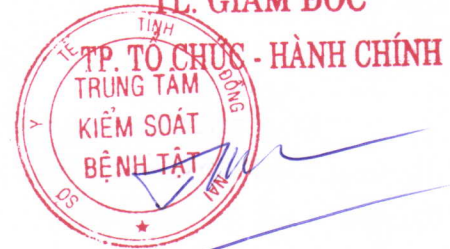 TL. GIÁM ĐỐC
TP. TỔ CHỨC - HÀNH CHÍNH
SỞ Y TẾ TỈNH ĐỒNG NAI
TRUNG TÂM
KIỂM SOÁT
BỆNH TẬT